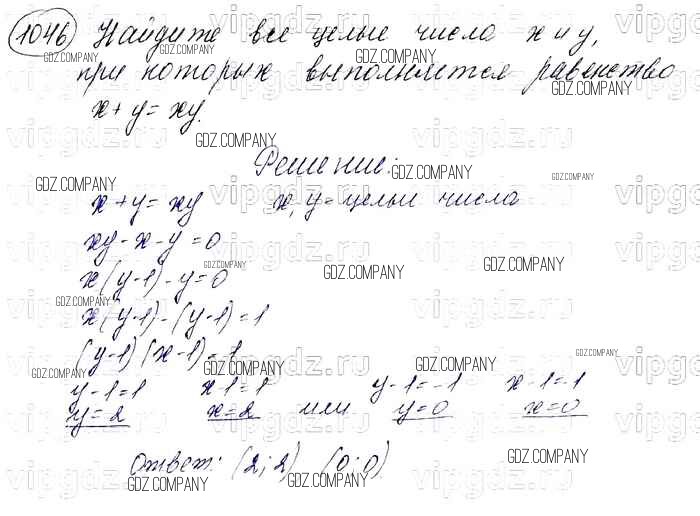 1046 Найдите все целые числа x и y,
при которых выполняется равенство
x + y = xy.
Решение:
x + y = xy x, y - целые числа
xy - x - y = 0
x(y-1) - y = 0
x(y-1) - (y-1) = 1
(y-1)(x-1) = 1
y-1=1 x-1=1 y-1=-1 x-1=-1
y=2 x=2 или y=0 x=0
Ответ: (2; 2) (0; 0)
GDZ.COMPANY
vipgdz.ru